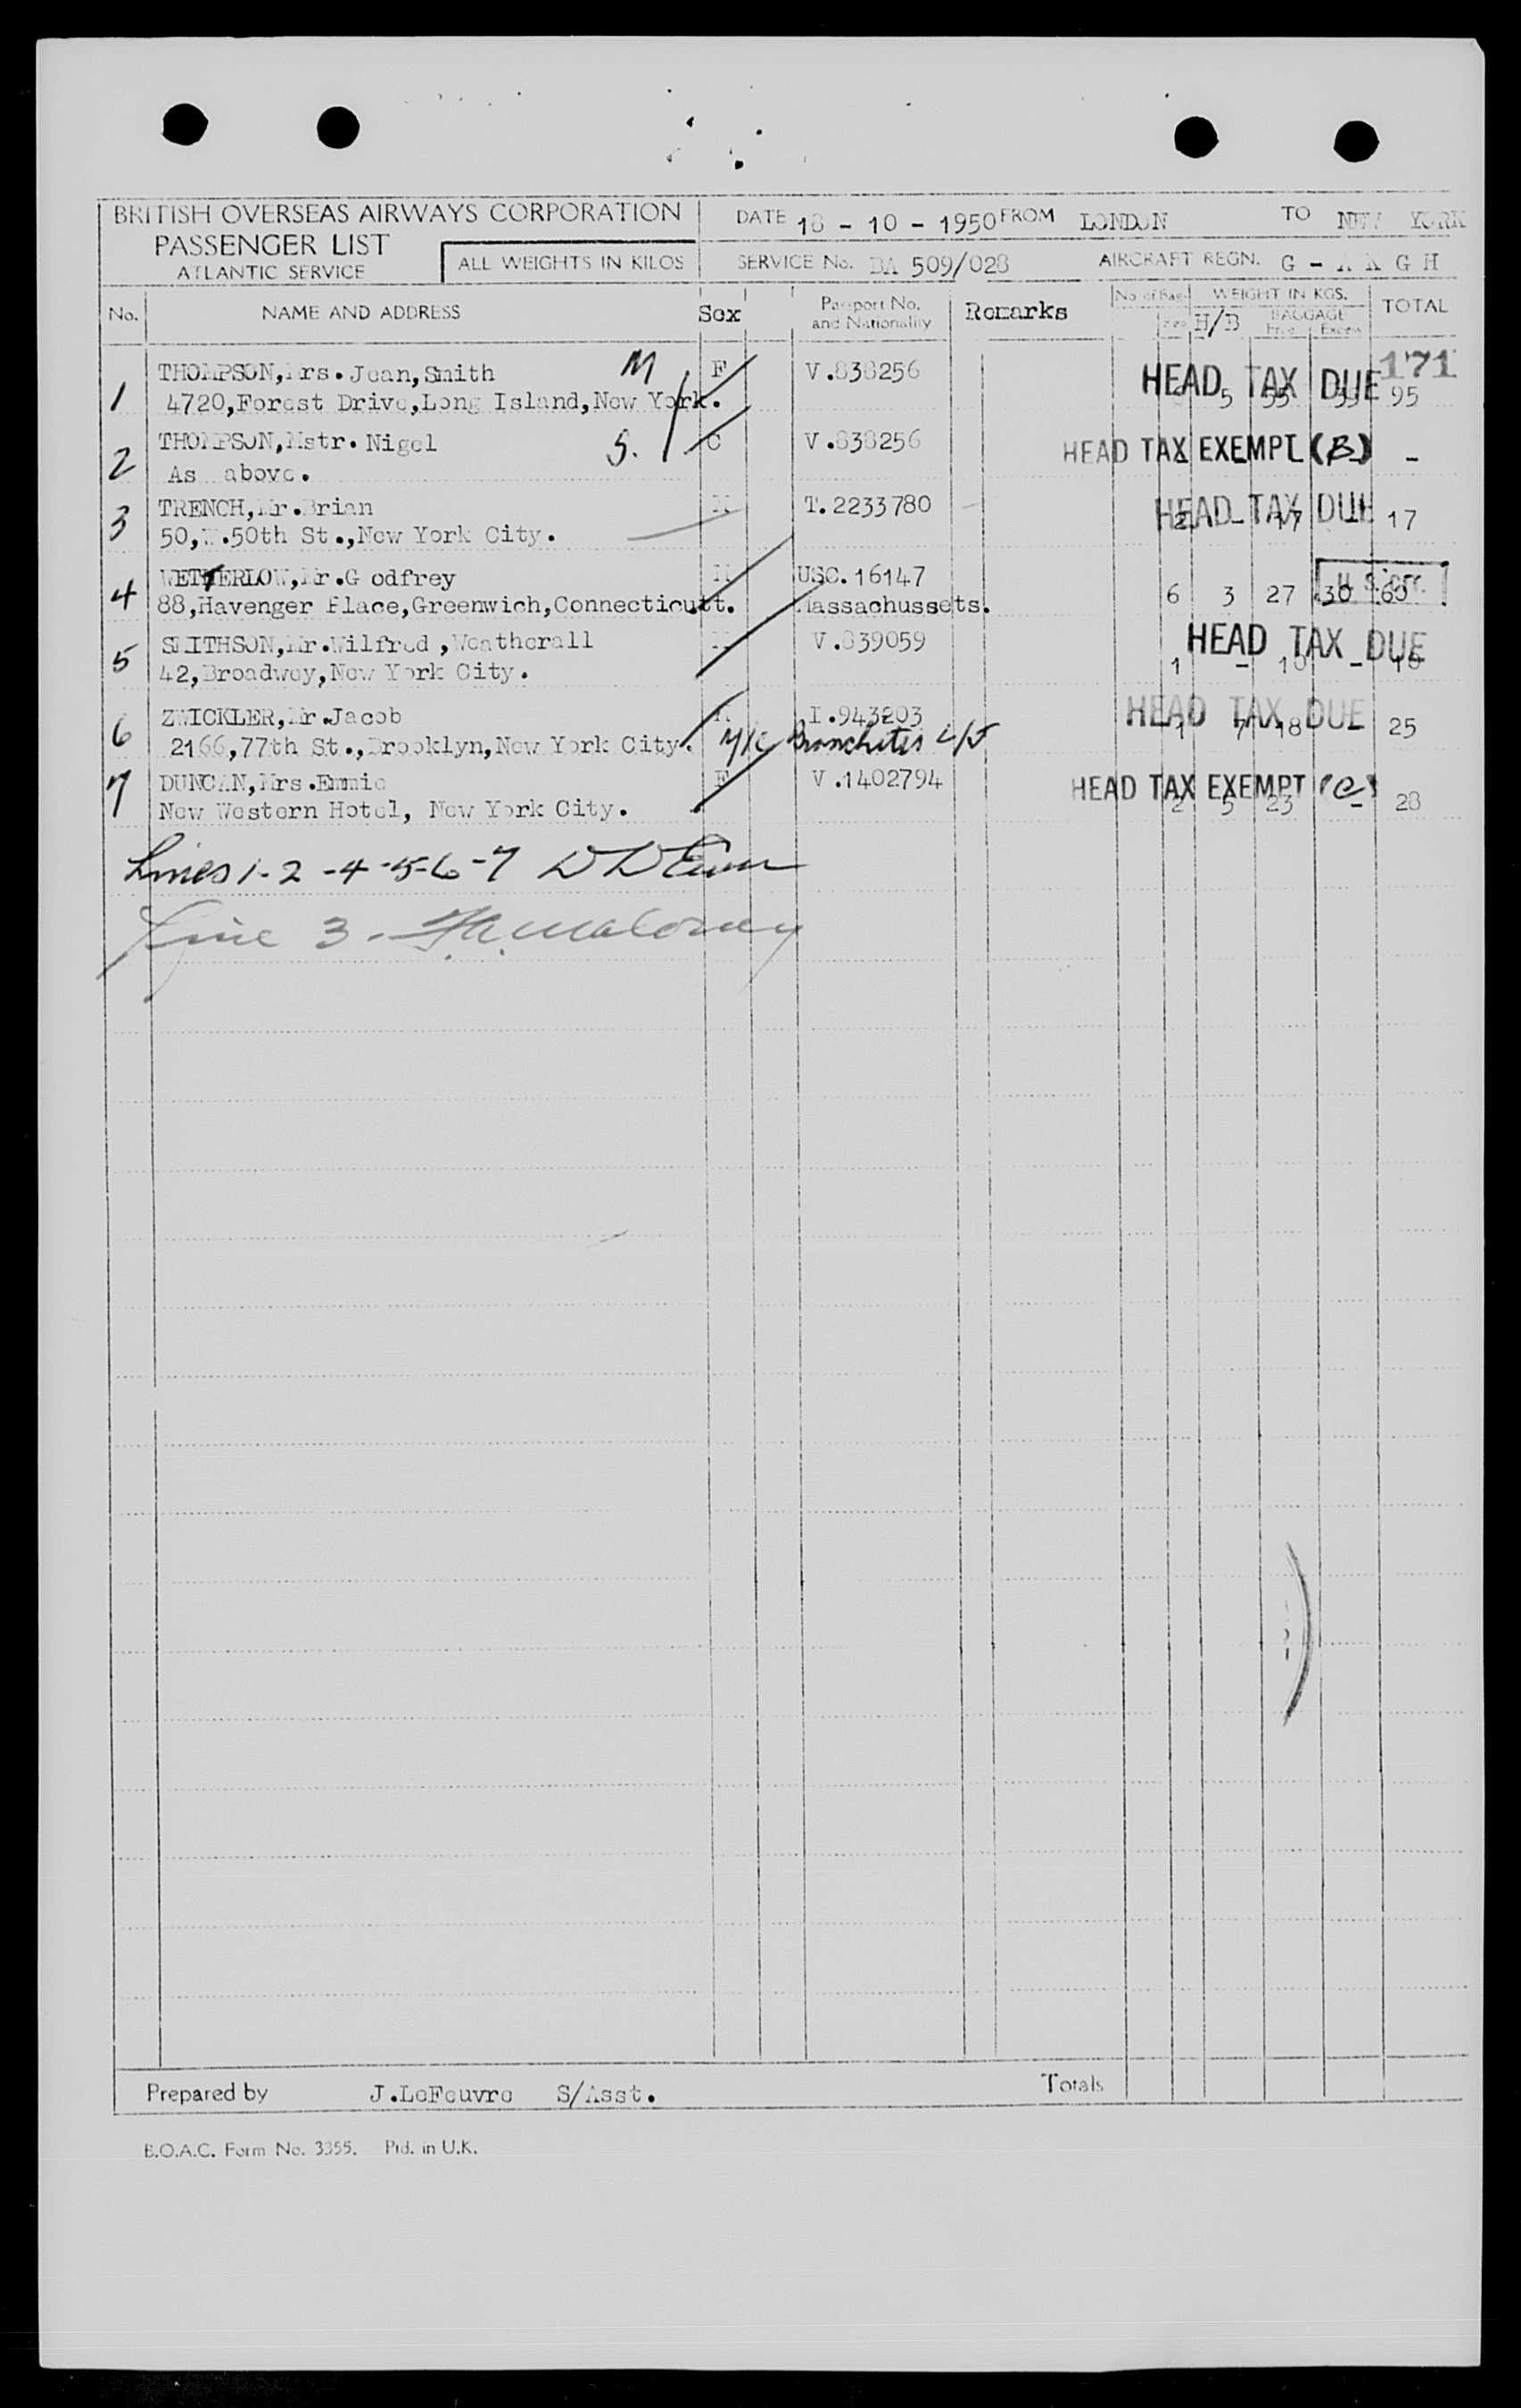 BRITISH OVERSEAS AIRWAYS CORPORATION
PASSENGER LIST
ATLANTIC SERVICE
ALL WEIGHTS IN KILOS
DATE 18 - 10 - 1950 FROM LONDON TO NEW YORK
SERVICE No. BA 509/028 AIRCRAFT REGN. G - A K G H
No. NAME AND ADDRESS Sex Passport No. and Nationality Remarks No of Bags WEIGHT IN KGS. H/B BAGGAGE Free Excess TOTAL
171
1 THOMPSON,Mrs.Jean,Smith M F V.838256 HEAD TAX DUE
4720,Forest Drive,Long Island,New York. 5 55 95
2 THOMPSON,Mstr.Nigel S. C V.838256 HEAD TAX EXEMPT (B) -
As above.
3 TRENCH,Mr.Brian M T.2233780 HEAD TAX DUE
50,W.50th St.,New York City. 2 - 17 17
4 WETHERLOW,Mr.G odfrey M USC.16147
88,Havenger Place,Greenwich,Connecticutt. Massachussets. 6 3 27 30 60
5 SMITHSON,Mr.Wilfred ,Weatherall M V.839059 HEAD TAX DUE
42,Broadwey,New York City. 1 - 10 - 10
6 ZWICKLER,Mr.Jacob M I.943203 HEAD TAX DUE
2166,77th St.,Brooklyn,New York City. Bronchitis 1 7 18 25
7 DUNCAN,Mrs.Emmie F V.1402794 HEAD TAX EXEMPT (C)
New Western Hotel, New York City. 2 5 23 - 28
Lines 1-2-4-5-6-7
Line 3. Maloney
Prepared by J.LeFeuvre S/Asst. Totals
B.O.A.C. Form No. 3355. Ptd. in U.K.